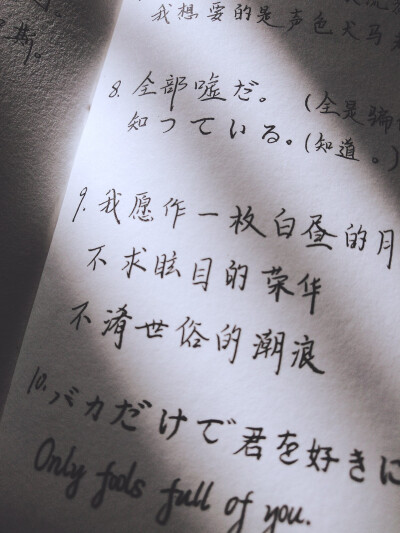 斯。
我想要的是声色犬马
8. 全部嘘だ。（全是骗
知っている。（知道。）
9. 我愿作一枚白昼的月
不求眩目的荣华
不淆世俗的潮浪
10. バカだけで君を好きに
Only fools full of you.